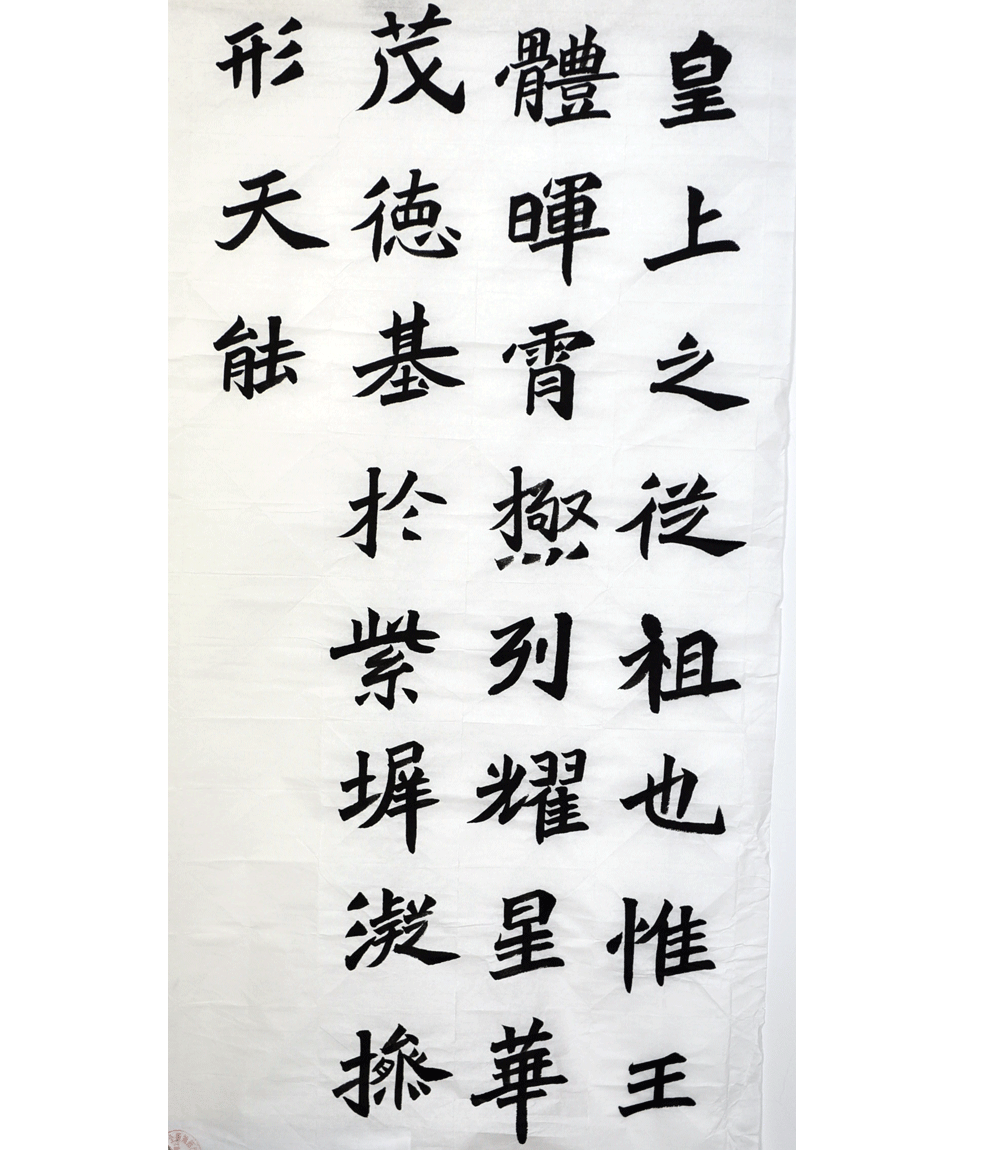 皇上之從祖也惟王
體暉霄極列耀星華
茂德基於紫墀凝操
形天能